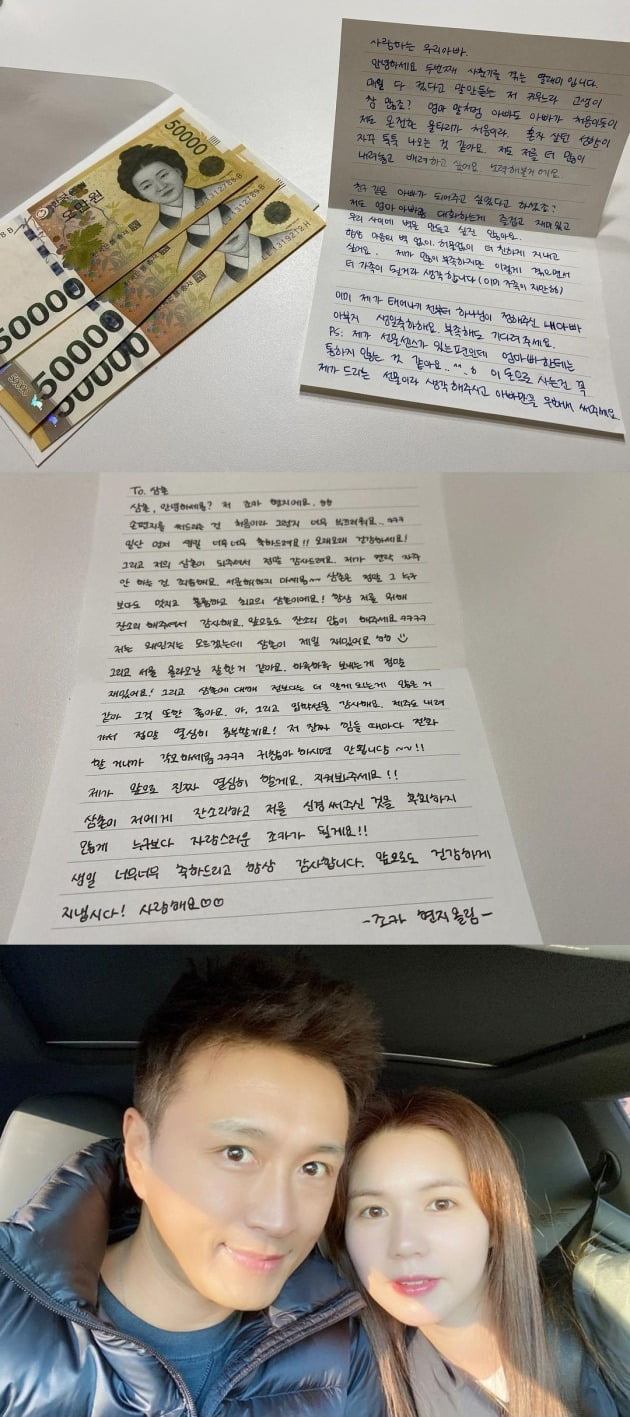 50000
한국은행
오만원
50000
50000
50000
사랑하는 우리아빠.
안녕하세요 두번째 사춘기를 겪는 딸래미 입니다.
매일 다 컸다고 말만듣는 저 키우느라 고생이
참 많죠? 엄마 말처럼 아빠도 아빠가 처음이듯이
저도 온전한 울타리가 처음이라. 혼자 살던 성향이
자꾸 툭툭 나오는 것 같아요. 저도 저를 더 많이
내려놓고 배려하고 싶어요. 노력해볼거에요
친구 같은 아빠가 되어주고 싶었다고 하셨죠?
저도 엄마아빠랑 대화하는게 즐겁고 재미있고
우리 사이에 벽을 만들고 싶진 않아요.
항상 마음의 벽 없이. 허물없이 더 친하게 지내고
싶어요. 제가 많이 부족하지만 이렇게 겪으면서
더 가족이 될거라 생각합니다 (이미 가족이지만ㅎㅎ)
이미 제가 태어나기 전부터 하나님이 정해주신 내아빠
아부지 생일축하해요. 부족해도 기다려주세요.
PS: 제가 선물센스가 있는편인데 엄마빠한테는
통하지 않는 것 같아요.. 이 돈으로 사는건 꼭
제가 드리는 선물이라 생각해주시고 아빠만을 위해서 써주세요.
To. 삼촌
삼촌, 안녕하세용? 저 조카 현지에요. ㅎㅎ
손편지를 써드리는 건 처음이라 그런지 너무 부끄러워요.. ㅋㅋㅋ
일단 먼저 생일 너무너무 축하드려요!! 오래오래 건강하세요!
그리고 저의 삼촌이 되주셔서 정말 감사드려요. 제가 연락 자주
안 하는 건 죄송해요. 서운해하지 마세용~ 삼촌은 정말 그 누구
보다도 멋지고 훌륭하고 최고의 삼촌이에요! 항상 저를 위해
잔소리 해주셔서 감사해요. 앞으로도 잔소리 많이 해주세요 ㅋㅋㅋㅋ
저는 왜인지는 모르겠는데 삼촌이 제일 재밌어요 ㅎㅎ
그리고 서울 올라오길 잘한거 같아요. 하루하루 보내는게 정말
재밌어요! 그리고 삼촌에 대해 전보다는 더 알게 되는게 많은 거
같아 그것 또한 좋아요. 아, 그리고 입학선물 감사해요. 제주도 내려
가서 정말 열심히 공부할게요! 저 진짜 힘들 때마다 전화
할 거니까 각오하세용 ㅋㅋㅋㅋ 귀찮아 하시면 안됩니당 ~~!!
제가 앞으로 진짜 열심히 할게요. 지켜봐주세요!!
삼촌이 저에게 잔소리하고 저를 신경써주신 것을 후회하지
않게 누구보다 자랑스러운 조카가 될게요!!
생일 너무너무 축하드리고 항상 감사합니다. 앞으로도 건강하게
지냅시다! 사랑해요♡♡
-조카 현지올림-